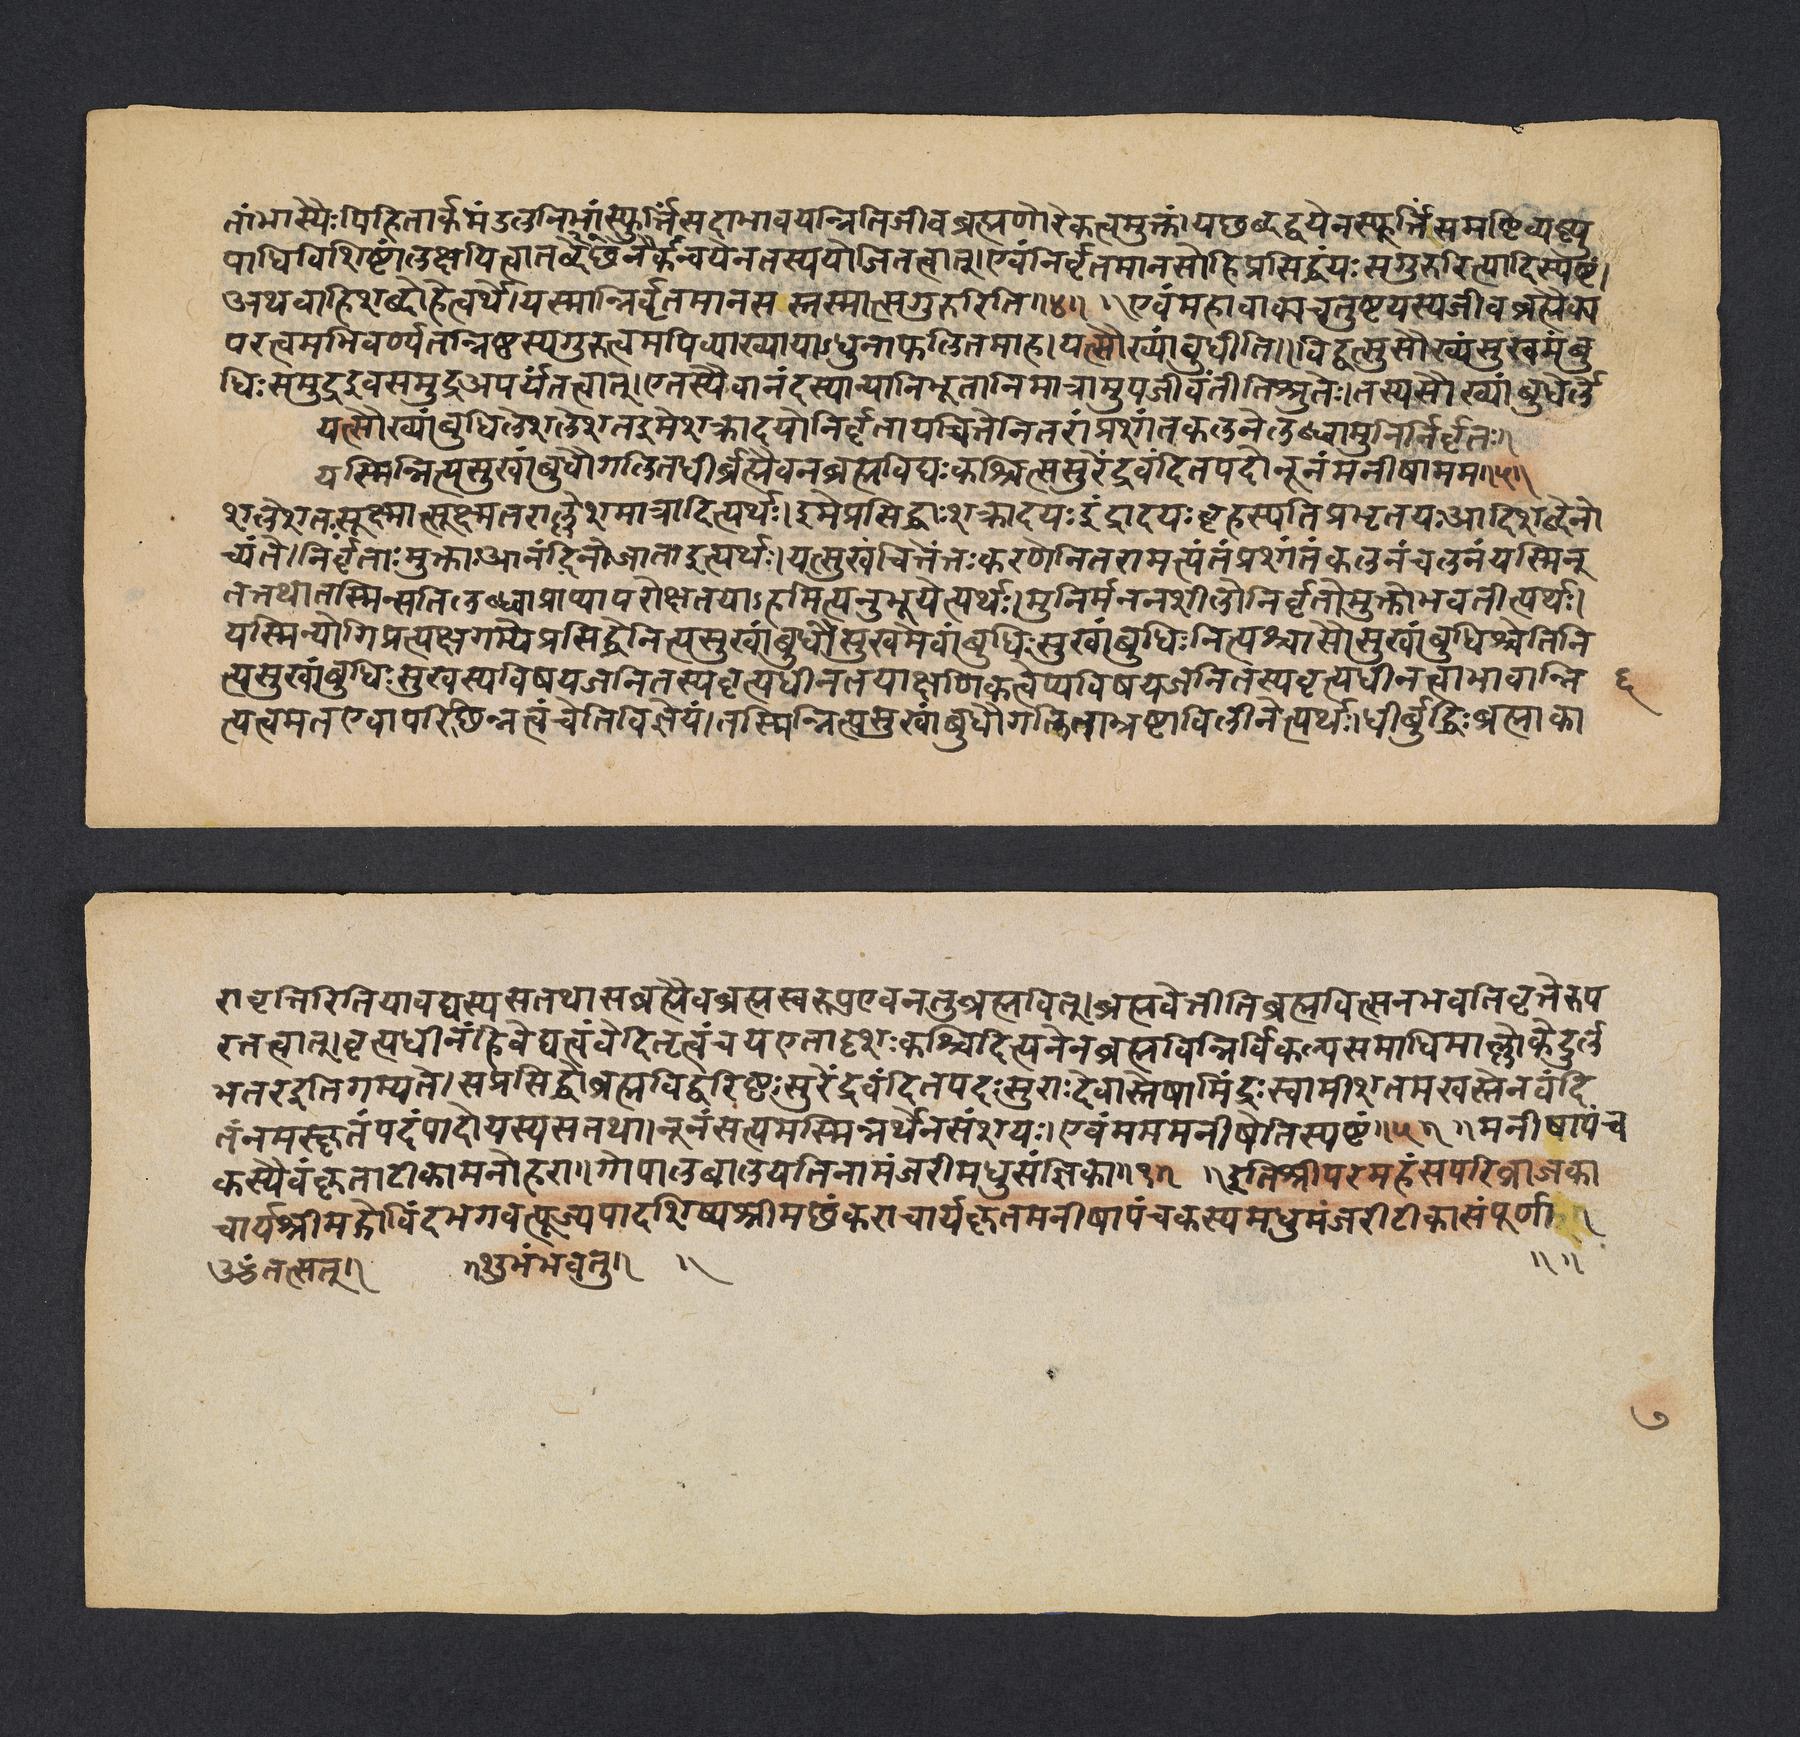 तांभास्यैःपिहितार्कमंडलनिभांस्फूर्त्तिंसदाभावयन्नितिजीवब्रह्मणोरेकत्वमुक्तं।यछब्दद्वयेनस्फूर्त्तिंसमष्टिव्यष्ट्यु
पाधिविशिष्टांलक्षयित्वातच्छब्देनैकेनान्वयेनतस्ययोजितत्वात्।एवंनिर्वृतमानसोहिप्रसिद्धंयःसगुरुरित्यादिस्पष्टं।
अथवाहिशब्दोहेत्वर्थे।यस्मान्निर्वृतमानसस्तस्मात्सगुरुरिति॥४॥ ॥एवंमहावाक्यचतुष्टयस्यजीवब्रह्मैक्य
परत्वमभिवर्ण्यतन्निष्ठस्यगुरुत्वमपिव्याख्यायाऽधुनाफलितमाह।यत्सौख्यांबुधीति॥विद्वत्सुसौख्यंसुखमंबु
धिःसमुद्रइवसमुद्रअपर्यंतत्वात्।एतस्यैवानंदस्यान्यानिभूतानिमात्रामुपजीवंतीतिश्रुतेः।तस्यसौख्यांबुधेर्ले
यत्सौख्यांबुधिलेशलेशतइमेशक्रादयोनिर्वृतायच्चित्तेनितरांप्रशांतकलनेलब्ध्वामुनिर्निर्वृतः॥
यस्मिन्नित्यसुखांबुधौगलितधीर्ब्रह्मैवनब्रह्मविद्यःकश्चित्ससुरेंद्रवंदितपदोनूनंमनीषामम॥५॥
शलेशतःसूक्ष्मात्सूक्ष्मतराल्लेशमात्रादित्यर्थः।इमेप्रसिद्धाःशक्रादयःइंद्रादयःबृहस्पतिप्रभृतयःआदिशब्देनो
च्यंते।निर्वृताःमुक्ताःआनंदिनोजाताइत्यर्थः।यत्सुखंचित्तेंतःकरणेनितरामत्यंतंप्रशांतंकलनंचलनंयस्मिन्
तत्तथातस्मिन्सतिलब्ध्वाप्राप्यापरोक्षतयाऽहमित्यनुभूयेत्यर्थः।मुनिर्मननशीलोनिर्वृतोमुक्तोभवतीत्यर्थः।
यस्मिन्योगिप्रत्यक्षगम्येप्रसिद्धेनित्यसुखांबुधौसुखमेवांबुधिःसुखांबुधिःनित्यश्चासौसुखांबुधिश्चेतिनि
त्यसुखांबुधिःसुखस्यविषयजनितस्यवृत्यधीनतयाक्षणिकत्वेप्यविषयजनितस्यवृत्यधीनत्वाभावान्नि
त्यत्वमतएवापरिछिन्नत्वंचेतिविज्ञेयं।तस्मिन्नित्यसुखांबुधौगलिताभ्रष्टाविलीनेत्यर्थः।धीर्बुद्धिःब्रह्माका
६
रावृत्तिरितियावद्यस्यसतथासब्रह्मैवब्रह्मस्वरूपएवनतुब्रह्मवित्।ब्रह्मवेत्तीतिब्रह्मवित्सनभवतिवृत्तेरुप
रतत्वात्।वृत्यधीनंहिवेद्यत्वंवेदितृत्वंचयएतादृशःकश्चिदित्यनेनब्रह्मविन्निर्विकल्पसमाधिमाल्लोकेदुर्ल
भतरइतिगम्यते।सप्रसिद्धोब्रह्मविद्वरिष्ठःसुरेंद्रवंदितपदःसुराःदेवास्तेषामिंद्रःस्वामीशतमखस्तेनवंदि
तंनमस्कृतंपदंपादौयस्यसतथा।नूनंसत्यमस्मिन्नर्थेनसंशयः।एवंमममनीषेतिस्पष्टं॥५॥ ॥मनीषापंच
कस्यैवंकृताटीकामनोहरा॥गोपालबालयतिनामंजरीमधुसंज्ञिका॥१॥ ॥इतिश्रीपरमहंसपरिव्राजका
चार्यश्रीमद्गोविंदभगवत्पूज्यपादशिष्यश्रीमछंकराचार्यकृतमनीषापंचकस्यमधुमंजरीटीकासंपूर्णा॥
ॐतत्सत्॥ ॥शुभंभवतु॥ ॥ ॥ ॥
७